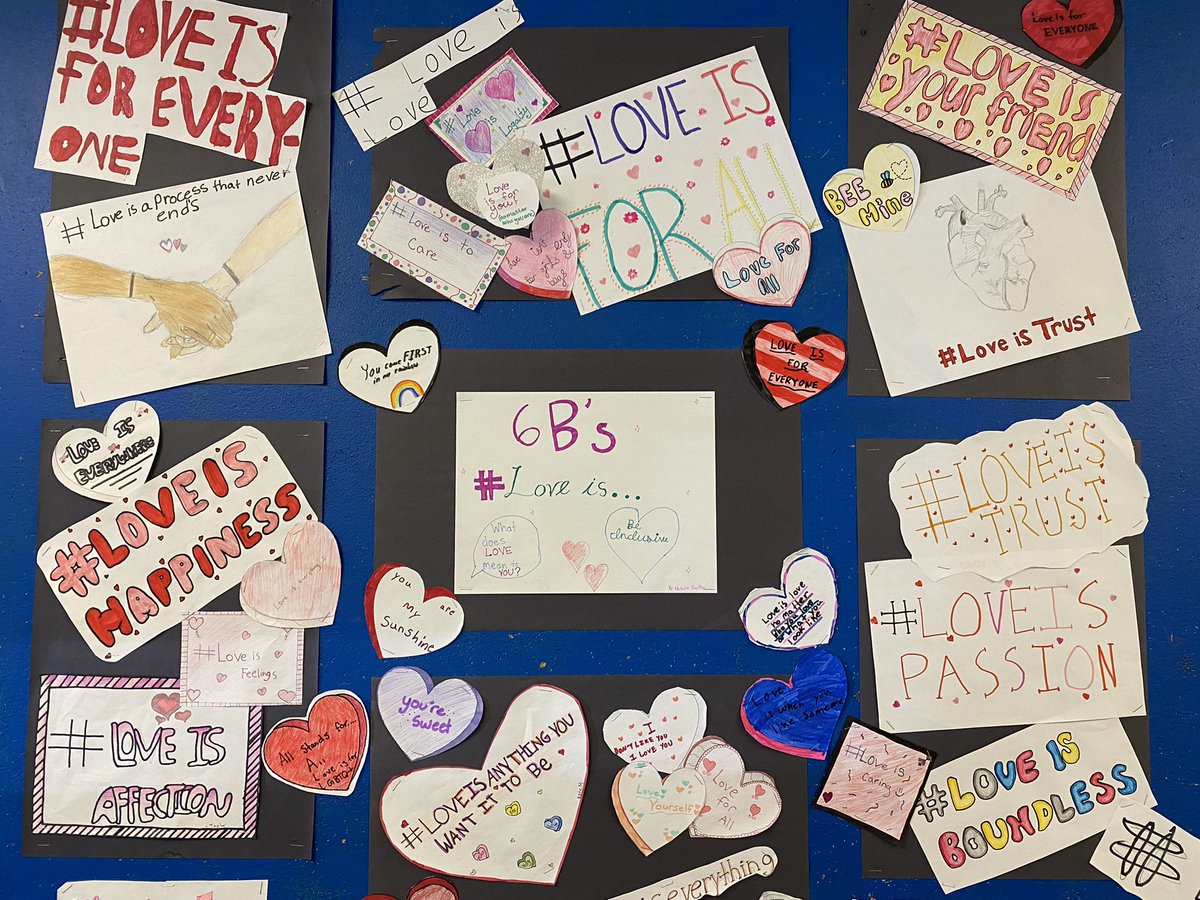 #LOVE IS
FOR EVERY-
ONE
# Love is a Process that never
ends
# Love is
Love
#Love
is
Loyalty
#LOVE IS
FOR All
Love
is for
you!
#Love is to
Care
girls &
boys
LOVE FOR
All
#LOVE IS
your friend
Love Is for
EVERYONE
BEE
Mine
#Love is Trust
You come FIRST
in my rainbow
LOVE IS
FOR
EVERYONE
6B's
#Love is...
What
does
LOVE
mean to
YOU?
Be
Inclusive
LOVE IS
EVERYWHERE
#LOVE IS
HAPPINESS
Love is
#Love is
Feelings
#LOVE IS
AFFECTION
All Stands for...
All
Love is for
you are
my
Sunshine
Love is love
no matter
who you love
or what you
look like
you're
Sweet
Love
is when you
like someone
#LOVE IS ANYTHING YOU
WANT IT TO BE
I
DON'T LIKE YOU
I LOVE YOU
Love
Yourself
Love
for
All
is everything
#LOVE IS
TRUST
#LOVE IS
PASSION
#Love is
caring
#LOVE IS
BOUNDLESS
#